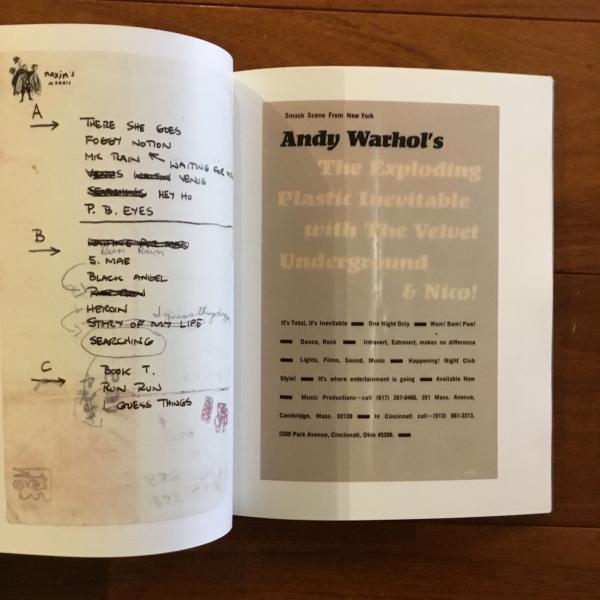 maxim's
A
THERE SHE GOES
FOGGY NOTION
MR. RAIN WAITING FOR
VENUS
SEARCHING HEY HO
P. B. EYES
B
WAITING FOR
Run Run
S. MAE
BLACK ANGEL
RUN RUN
HEROIN
I guess things
STORY OF MY LIFE
SEARCHING
C
BOOK T.
RUN RUN
I GUESS THINGS
Smash Scene From New York
Andy Warhol's
The Exploding
Plastic Inevitable
with The Velvet
Underground
& Nico!
It's Total, It's Inevitable — One Night Only — Wam! Bam! Pow!
— Dance, Rock — Introvert, Extrovert, makes no difference
— Lights, Films, Sound, Music — Happening! Night Club
Style! — It's where entertainment is going — Available Now
— Music Productions—call (617) 267-0460, 351 Mass. Avenue,
Cambridge, Mass. 02139 — In Cincinnati call—(513) 861-3313,
2368 Park Avenue, Cincinnati, Ohio 45206. —